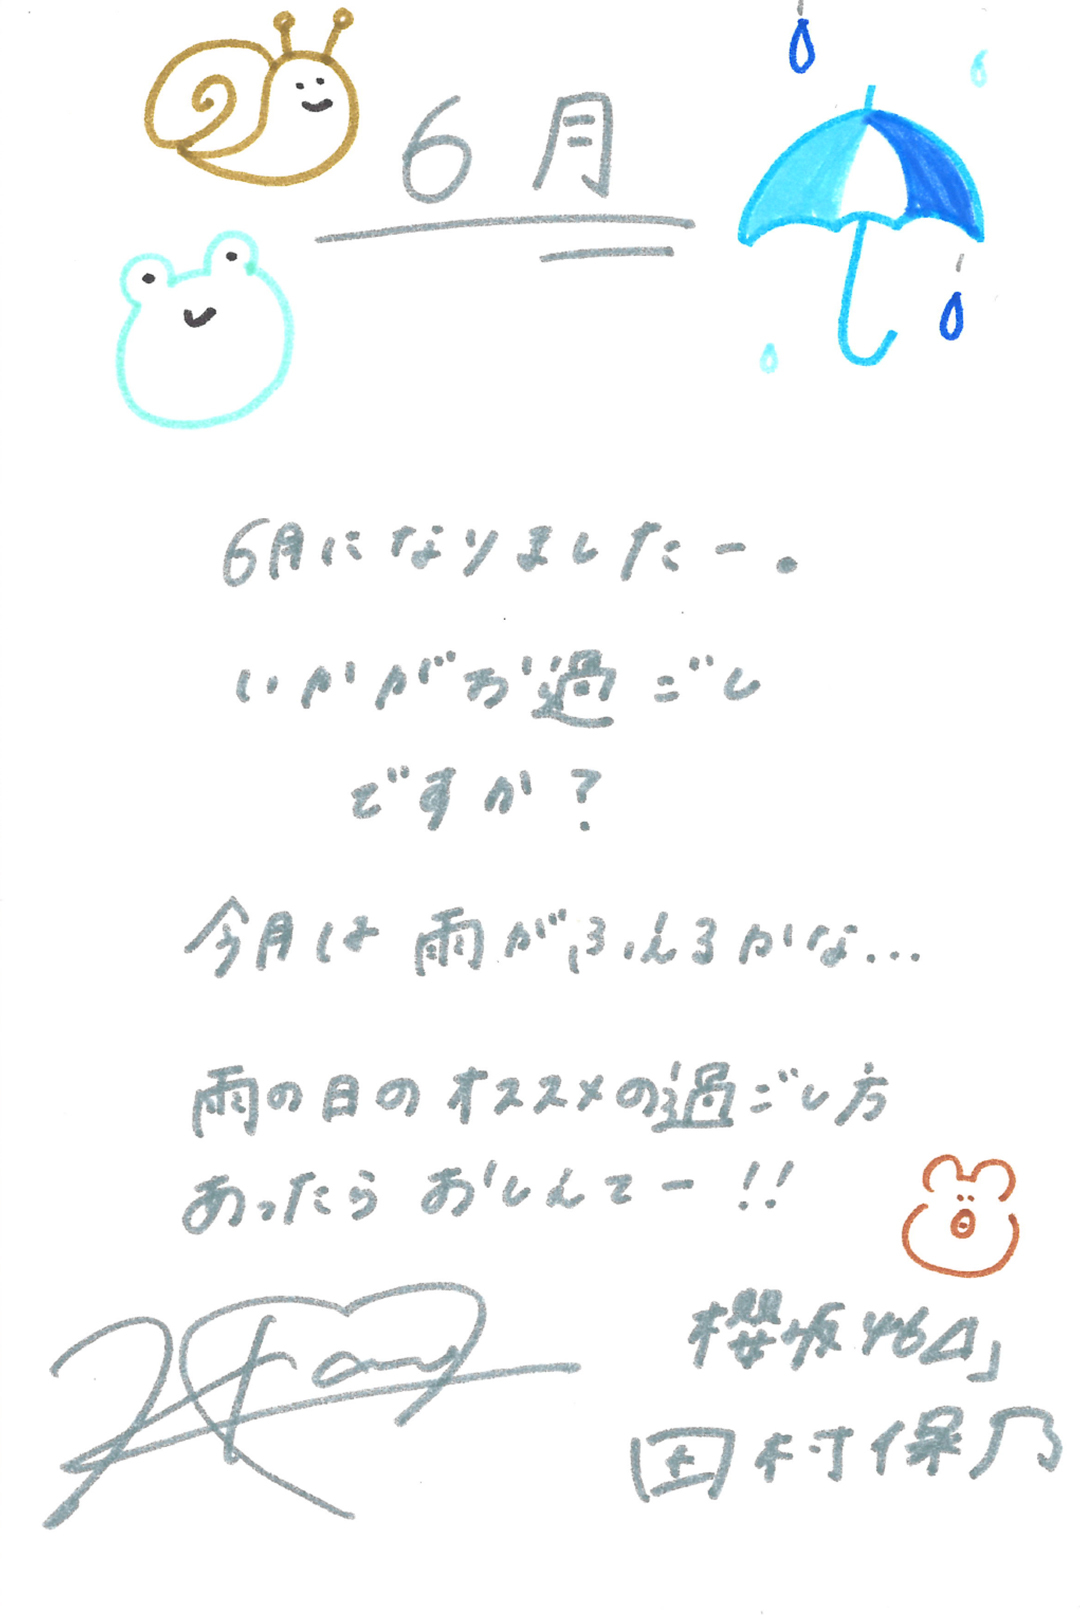 6月
6月になりましたー。
いかがお過ごし
ですか？
今月は雨がふえるかな...
雨の日のオススメの過ごし方
あったらおしえてー!!
櫻坂46」
田村保乃